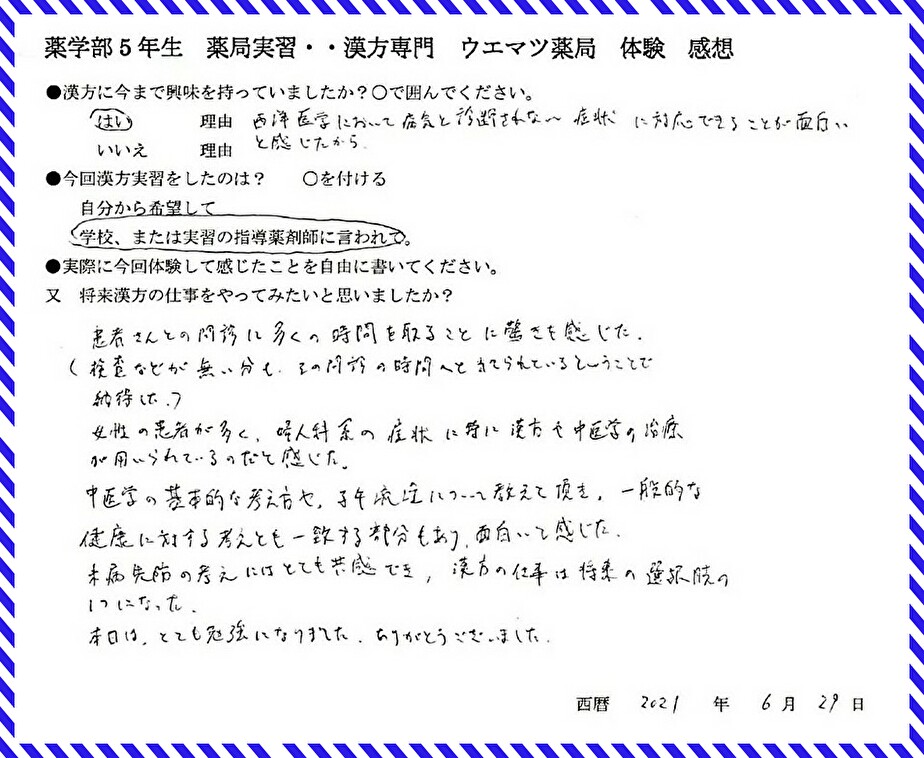 薬学部5年生　薬局実習・・漢方専門　ウエマツ薬局　体験　感想
●漢方に今まで興味を持っていましたか？○で囲んでください。
はい　理由　西洋医学において病気と診断されない症状に対応できることが面白い
と感じたから.
いいえ　理由
●今回漢方実習をしたのは？　○を付ける
自分から希望して
学校、または実習の指導薬剤師に言われて。
●実際に今回体験して感じたことを自由に書いてください。
又　将来漢方の仕事をやってみたいと思いましたか？
患者さんとの問診に多くの時間を取ることに驚きを感じた.
(検査などが無い分も、その問診の時間へと あてられているということで
納得した.)
女性の患者が多く、婦人科系の症状に特に漢方や中医学の治療
が用いられているのだと感じた.
中医学の基本的な考え方や、子午流注について教えて頂き、一般的な
健康に対する考えとも一致する部分もあり、面白いて感じた.
未病先防の考えにはとても共感でき、漢方の仕事は将来の選択肢の
1つになった.
本日は、とても勉強になりました. ありがとうございました.
西暦　2021　年　6月　29日